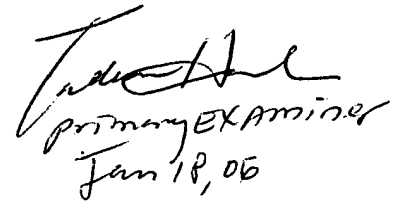 primary EXAminer
Jan 18, 06